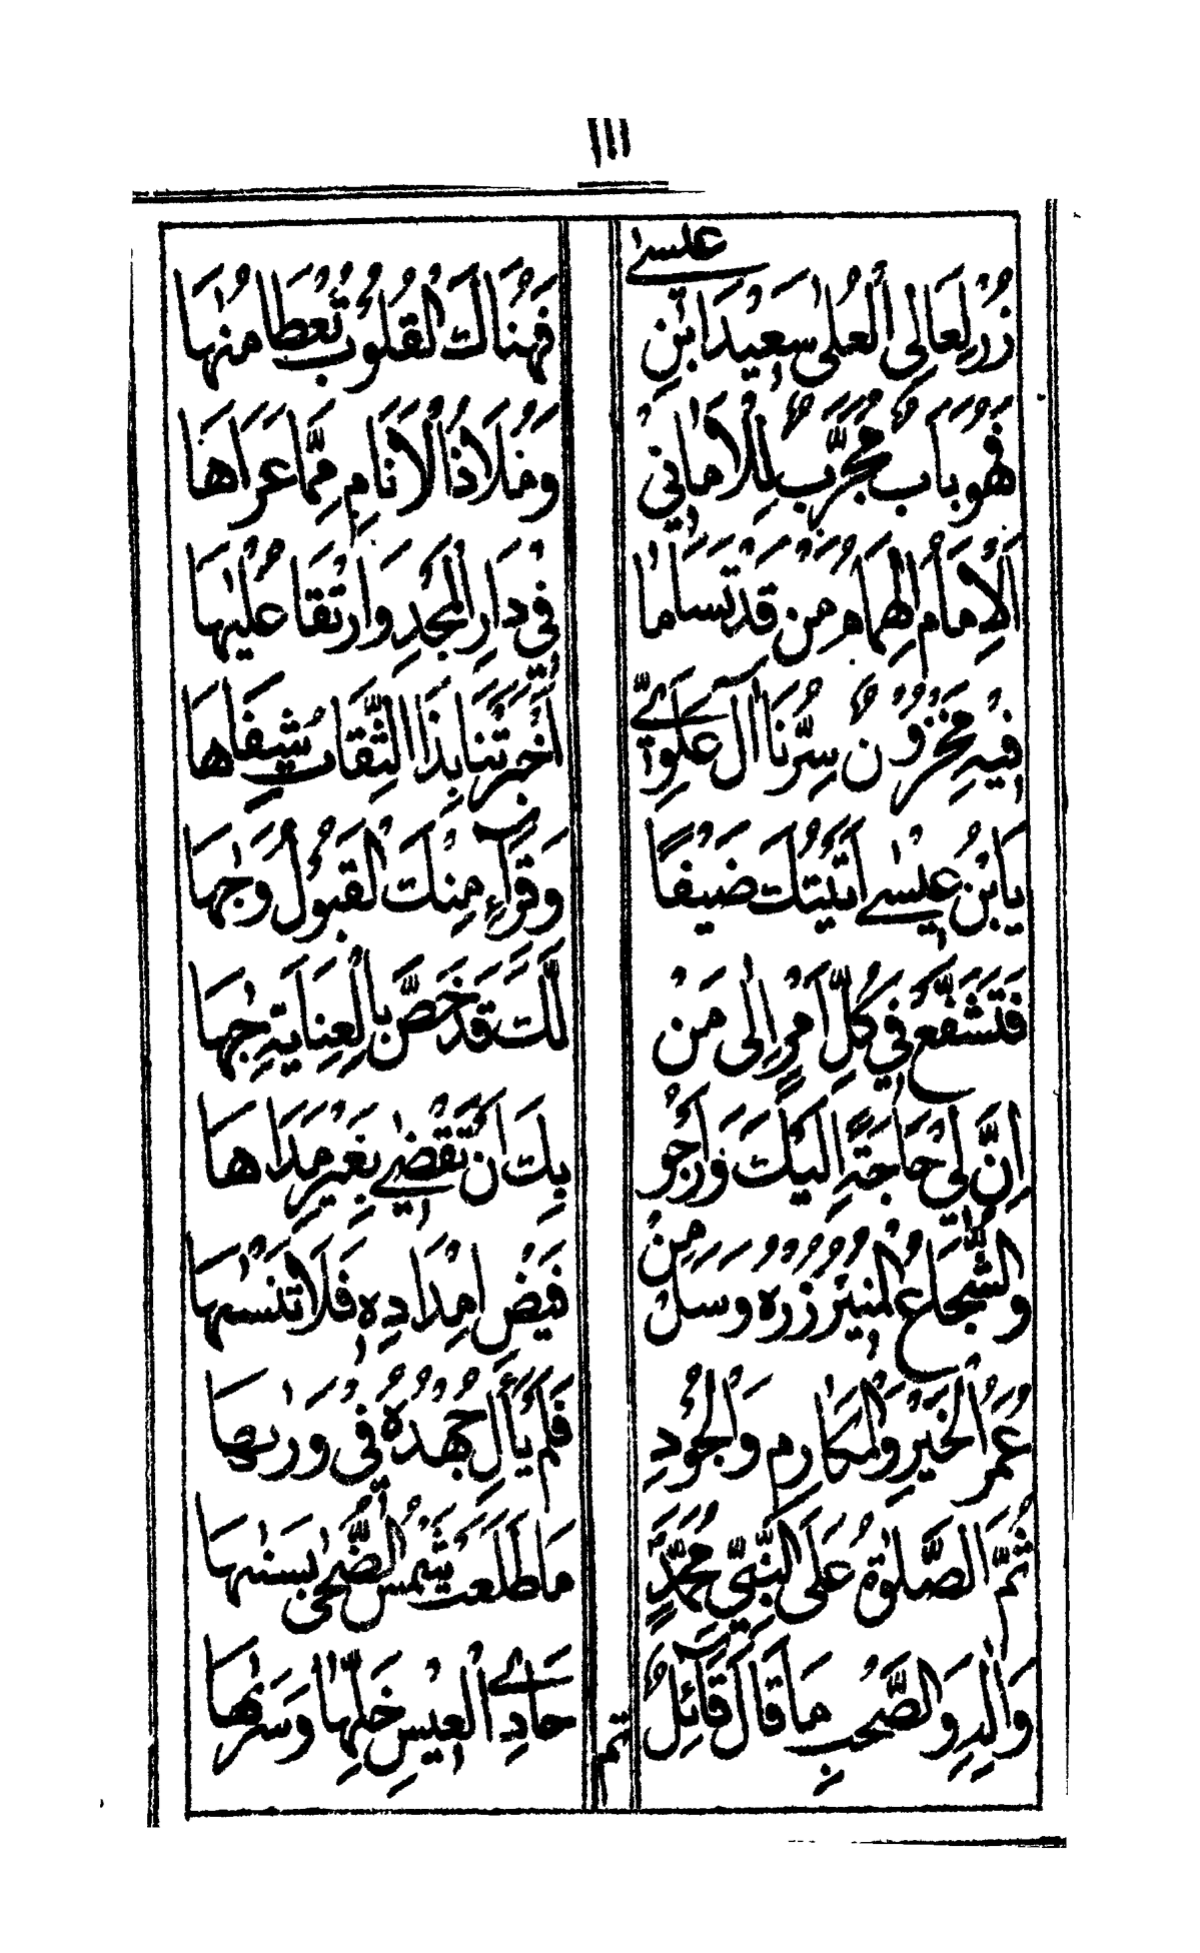 ١١١
زُرْ لِعَالِي الْعُلٰى سَعِيْدَ ابْنِ عيسىٰ فَهُنَاكَ الْقُلُوْبُ تُعْطَا مُنٰهَا
فَهُوَ بَابٌ مُجَرَّبٌ لِلْاَمَانِيْ وَمُلَاذُ الْاَنَامِ مِمَّا عَرَاهَا
اَلْاِمَامُ الْهُمَامُ مَنْ قَدْ تَسَامٰا فِيْ دَارِ الْمَجْدِ وَارْتَقَا عُلْيٰهَا
فِيْهِ مَخْزُوْنٌ سِرُّنَا اٰلَ عَلَوِيّ اَخْبَرَتْنَا بِذَا الثِّقَاتُ شِفَاهَا
يَا بْنَ عِيْسٰى اَتَيْتُكَ ضَيْفًا وَقِرَآءِ مِنْكَ الْقَبُوْلُ وَجٰهَا
فَتَشَفَّعْ فِي كُلِّ اَمْرٍ اِلٰى مَنْ لَكَ قَدْ خَصَّ بِالْعِنَايَةِ جٰهَا
اِنَّ لِيْ حَاجَةً اِلَيْكَ وَاَرْجُو بِكَ اَنْ تُقْضٰى بِغَيْرِ مَدَاهَا
وَالشُّجَاعُ الْمُنِيْرُ زُرْهُ وَسَلْ مِنْ فَيْضِ اِمْدَادِهِ فَلَا تَنْسٰهَا
عُمَرُ الْخَيْرِ وَالْمَكَارِمِ وَالْجُوْدِ فَلَمْ يَأْلِ جُهْدُهُ فِيْ وَرٰىهَا
ثُمَّ الصَّلٰوةُ عَلَى النَّبِيِّ مُحَمَّدٍ مَا طَلَعَتْ شَمْسُ الضُّحٰى بِسَنٰهَا
وَالِدِ وَالصَّحْبِ مَا قَالَ قَآئِلٌ حَادِيَ الْعِيْسِ خَلِّهَا وَسَرٰهَا
تم